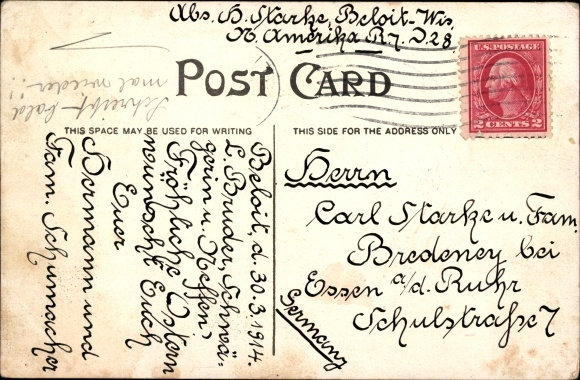 Abs. H. Starke, Beloit-Wis.
N. Amerika R.7. D.28
POST CARD
U.S. POSTAGE
2 CENTS 2
Schreibt bald
mal wieder!!
THIS SPACE MAY BE USED FOR WRITING
THIS SIDE FOR THE ADDRESS ONLY
Beloit, d. 30.3.1914.
L. Bruder, Schwä-
gerin u. Neffen!
Fröhliche Ostern
wünscht Euch
Euer
Hermann und
Fam. Schumacher
Herrn
Carl Starke u. Fam.
Bredeney bei
Essen a/d. Ruhr
Schulstraße 7
Germany